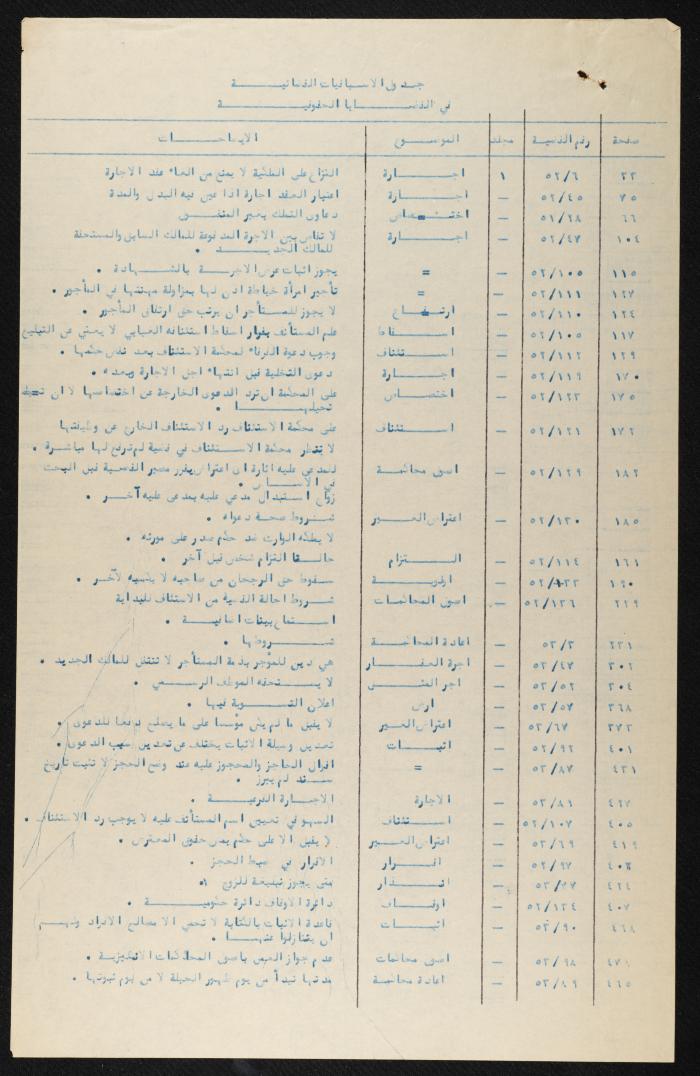 جدول الاسبقيات القضائية
في القضايا الحقوقية
صفحة رقم القضية مجلد الموضوع الايضاحات
٢٢ ٥٢/٦ ١ اجارة النزاع على الملكية لا يمنع من الغاء عقد الاجارة
٧٥ ٥٢/٤٥ — اجارة اعتبار العقد اجارة اذا عين فيه البدل والمدة
٦٦ ٥١/٢٨ — اختصاص دعاوى التملك بغير المنقول
١٠٤ ٥٢/٤٧ — اجارة لا تقاص بين الاجرة المدفوعة للمالك السابق والمستحقة
للمالك الجديد .
١١٥ ٥٢/١٠٥ — = يجوز اثبات عرض الاجرة بالشهادة .
١٢٧ ٥٢/١١١ — = تأجير امرأة خياطة اذن لها بمزاولة مهنتها في المأجور .
١٢٤ ٥٢/١١٠ — ارتفاع لا يجوز للمستأجر ان يرتب حق ارتفاق المأجور .
١١٧ ٥٢/١٠٥ — اسقاط علم المستأنف بقرار اسقاط استئنافه الغيابي لا يغني عن التبليغ
١٢٩ ٥٢/١١٢ — استئناف وجوب دعوة الفرقاء لمحكمة الاستئناف بعد نقض حكمها .
١٧٠ ٥٢/١١٩ — اجارة دعوى التخلية قبل انتهاء اجل الاجارة وبعده .
١٧٥ ٥٢/١٢٣ — اختصاص على المحكمة ان ترد الدعوى الخارجة عن اختصاصها لا ان
تحيلها .
١٧٢ ٥٢/١٢١ — استئناف على محكمة الاستئناف رد الاستئناف الخارج عن وظيفتها
لا تنظر محكمة الاستئناف في قضية لم ترفع لها مباشرة .
١٨٢ ٥٢/١٢٩ — اصول محاكمة للمدعى عليه اثارة اى اعتراض يقرر مصير القضية قبل البحث
في الاساس .
زوال استبدال مدعي عليه بمدعى عليه آخر .
١٨٥ ٥٢/١٣٠ — اعتراض الغير شروط صحة دعواه .
لا يملكه الوارث ضد حكم صدر على مورثه .
١٦١ ٥٢/١١٤ — التزام التزام شخص قبل آخر .
١٩٠ ٥٢/١٣٣ — اولوية سقوط حق الرجحان من صاحبه لا يكسبه لآخر .
٢٢٩ ٥٢/١٣٦ — اصول المحاكمات شروط احالة القضية من الاستئناف للبداية
استماع بينات اضافية .
٢٣١ ٥٣/٣ — اعادة المحاكمة شروطها .
٣٠٢ ٥٣/٤٧ — اجرة العقار هي دين للمؤجر بذمة المستأجر لا تنتقل للمالك الجديد .
٣٠٤ ٥٣/٥٢ — اجر المثل لا يستحقه الموظف الرسمي .
٣٦٨ ٥٣/٥٧ — ارض اعلان التسوية فيها .
٣٧٣ ٥٣/٦٧ — اعتراض الغير لا يقبل ما لم يكن مؤسسا على ما يصلح دفعا للدعوى .
٤٠١ ٥٣/٩٢ — اثبات تعديل وسيلة الاثبات يختلف عن تعديل سبب الدعوى .
٤٣١ ٥٣/٨٧ — = اقرار الحاجز والمحجوز عليه عند وضع الحجز لا تثبت تاريخ
سند لم يبرز .
٤٢٧ ٥٣/٨١ — الاجارة الاجارة الفرعية .
٤٠٥ ٥٢/١٠٧ — استئناف السهو في تعيين اسم المستأنف عليه لا يوجب رد الاستئناف .
٤١٩ ٥٣/٦٩ — اعتراض الغير لا يقبل الا على حكم يمس حقوق المعترض .
٥٣/٩٧ — اقرار الاقرار في ضبط الحجز .
٤٢٤ ٥٣/٧٧ — انذار متى يجوز تبليغه للزوج .
٤٠٧ ٥٢/١٣٤ — اوقاف دائرة الاوقاف دائرة حكومية .
٤٦٨ ٥٣/٩٠ — اثبات قاعدة الاثبات بالكتابة لا تحمي الا مصالح الافراد ولهم
ان يتنازلوا عنها .
٥٣/٩٨ — اصول محاكمات عدم جواز العمل باصول المحاكمات الانكليزية .
٤٦٥ ٥٣/٨٩ — اعادة محاكمة مدتها تبدأ من يوم ظهور الحيلة لا من يوم ثبوتها .